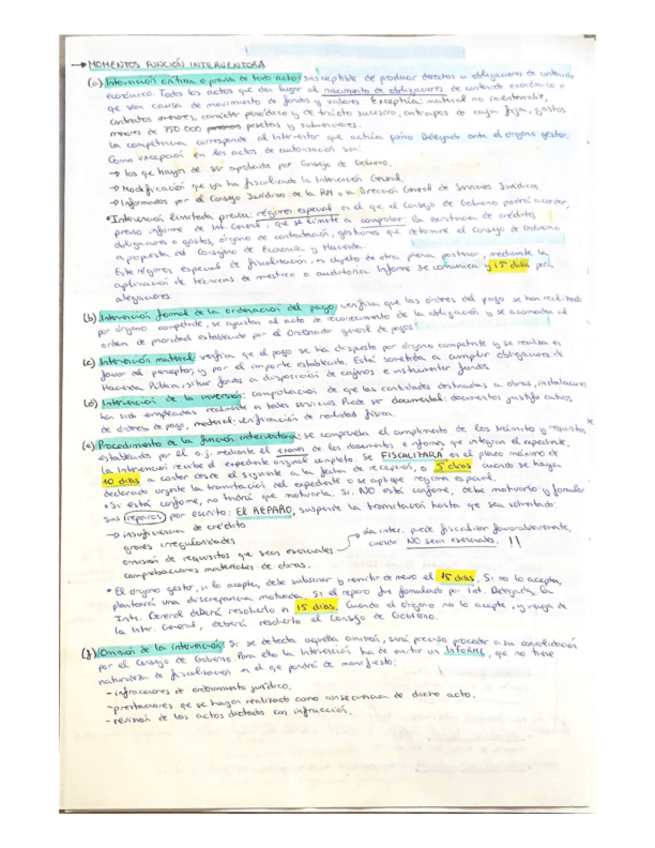 → MOMENTOS FUNCIÓN INTERVENTORA
(a) Intervención crítica o previa de todo acto, susceptible de producir derechos u obligaciones de contenido
económico. Todos los actos que den lugar al nacimiento de obligaciones de contenido económico o
que sean causa de movimiento de fondos y valores. Excepción: material no inventariable,
contratos menores, carácter periódico y de tracto sucesivo, anticipos de caja fija, gastos
menores de 750.000 pesetas y subvenciones.
La competencia corresponde al Interventor que actúa como Delegado ante el órgano gestor.
Como excepción en los actos de autorización son:
→ los que hayan de ser aprobados por Consejo de Gobierno.
→ Modificación que ya ha fiscalizado la Intervención General.
→ Informados por el Consejo Jurídico de la RM o la Dirección General de Servicios Jurídicos.
• Intervención limitada previa: régimen especial en el que el Consejo de Gobierno podrá acordar,
previo informe de Int. General, que se limite a comprobar: la existencia de crédito,
obligaciones o gastos, órgano de contratación, gestiones que determine el Consejo de Gobierno
a propuesta del Consejero de Economía y Hacienda.
Este régimen especial de fiscalización, es objeto de otra plena posterior, mediante la
aplicación de técnicas de muestreo o auditoría. Informe se comunica y 15 días para
alegaciones.
(b) Intervención formal de la ordenación del pago: verifica que las órdenes del pago se han realizado
por órgano competente, se ajustan al acto de reconocimiento de la obligación y se acomodan al
orden de prioridad establecido por el Ordenador general de pagos.
(c) Intervención material: verifica que el pago se ha dispuesto por órgano competente y se realiza en
favor del perceptor, y por el importe establecido. Está sometida a cumplir obligaciones de
Hacienda Pública, situar fondos a disposición de cajeros e instrumentar fondos.
(d) Intervención de la inversión: comprobación de que las cantidades destinadas a obras, instalaciones
ha sido empleadas realmente en tales servicios. Puede ser documental: documentos justificativos
de órdenes de pago, material: verificación de realidad física.
(e) Procedimiento de la función interventora: se comprueba el cumplimento de los trámites y requisitos
establecidos por el o.j. mediante el examen de los documentos e informes que integran el expediente.
La Intervención recibe el expediente original completo. Se FISCALIZARÁ en el plazo máximo de
10 días a contar desde el siguiente a la fecha de recepción, o 5 días cuando se haya
declarado urgente la tramitación del expediente o se aplique régimen especial.
• Si está conforme, no tendrá que motivarla. Si NO está conforme, debe motivarlo y formular
sus reparos por escrito: EL REPARO, suspende la tramitación hasta que sea solventado:
→ insuficiencia de crédito
graves irregularidades
omisión de requisitos que sean esenciales
comprobaciones materiales de obras.
→ La inter. puede fiscalizar favorablemente,
cuando NO sean esenciales. !!
• El órgano gestor, si lo acepta, debe subsanar y remitir de nuevo el 15 días. Si no lo acepta,
planteará una discrepancia motivada. Si el reparo fue formulado por Int. Delegada, la
Inte. General deberá resolverlo en 15 días. Cuando el órgano no lo acepte, y venga de
la Inter. General, deberá resolverlo el Consejo de Gobierno.
(f) Omisión de la intervención: Si se detecta aquella omisión, será preciso proceder a su convalidación
por el Consejo de Gobierno. Para ello la Intervención ha de emitir un INFORME, que no tiene
naturaleza de fiscalización en el que pondrá de manifiesto:
- infracciones de ordenamiento jurídico.
- prestaciones que se hayan realizado como consecuencia de dicho acto.
- revisión de los actos dictados con infracción.